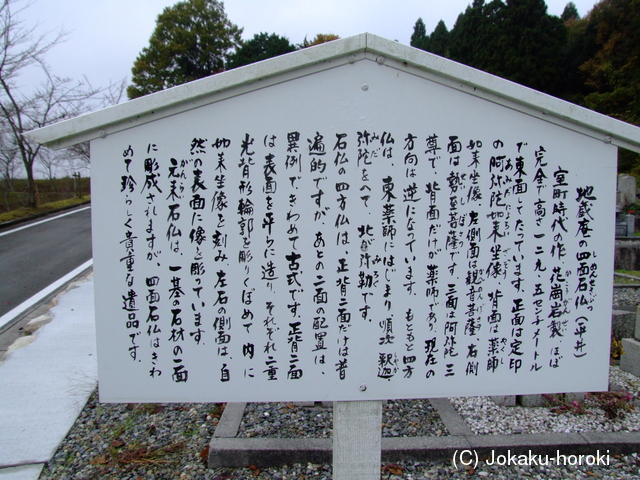 地蔵庵の四面石仏(平井)
しめんせきぶつ
室町時代の作、花崗岩製、ほぼ
かこうがんせい
完全で高一二九、五センチメートル
で東面してたっています。正面は定印
の阿弥陀如来坐像、背面は薬師
あみだにょらいざぞう
やくし
如来坐像、左側面は観音菩薩、右側
かんのんぼさつ
面は勢至菩薩です。三面は阿弥陀三
せいしぼさつ
尊で、背面だけが薬師であり、現在の
方向は逆になっています。もともと四方
仏は、東薬師にはじまり、順次釈迦、
しゃか
弥陀をへて、北が弥勒です。
みだ
みろく
石仏の四方仏は、正背二面だけは普
遍的ですが、あとの二面の配置は
異例で、きわめて古式です。正背二面
は表面を平らに造り、それぞれ二重
光背形輪郭を彫りくぼめて、内に
如来坐像を刻み、左右の側面は、自
然の表面に像を彫っています。
元来石仏は、一基の石材の一面
がんらい
に彫成されますが、四面石仏はきわ
めて珍らしく貴重な遺品です。
(C) Jokaku-horoki